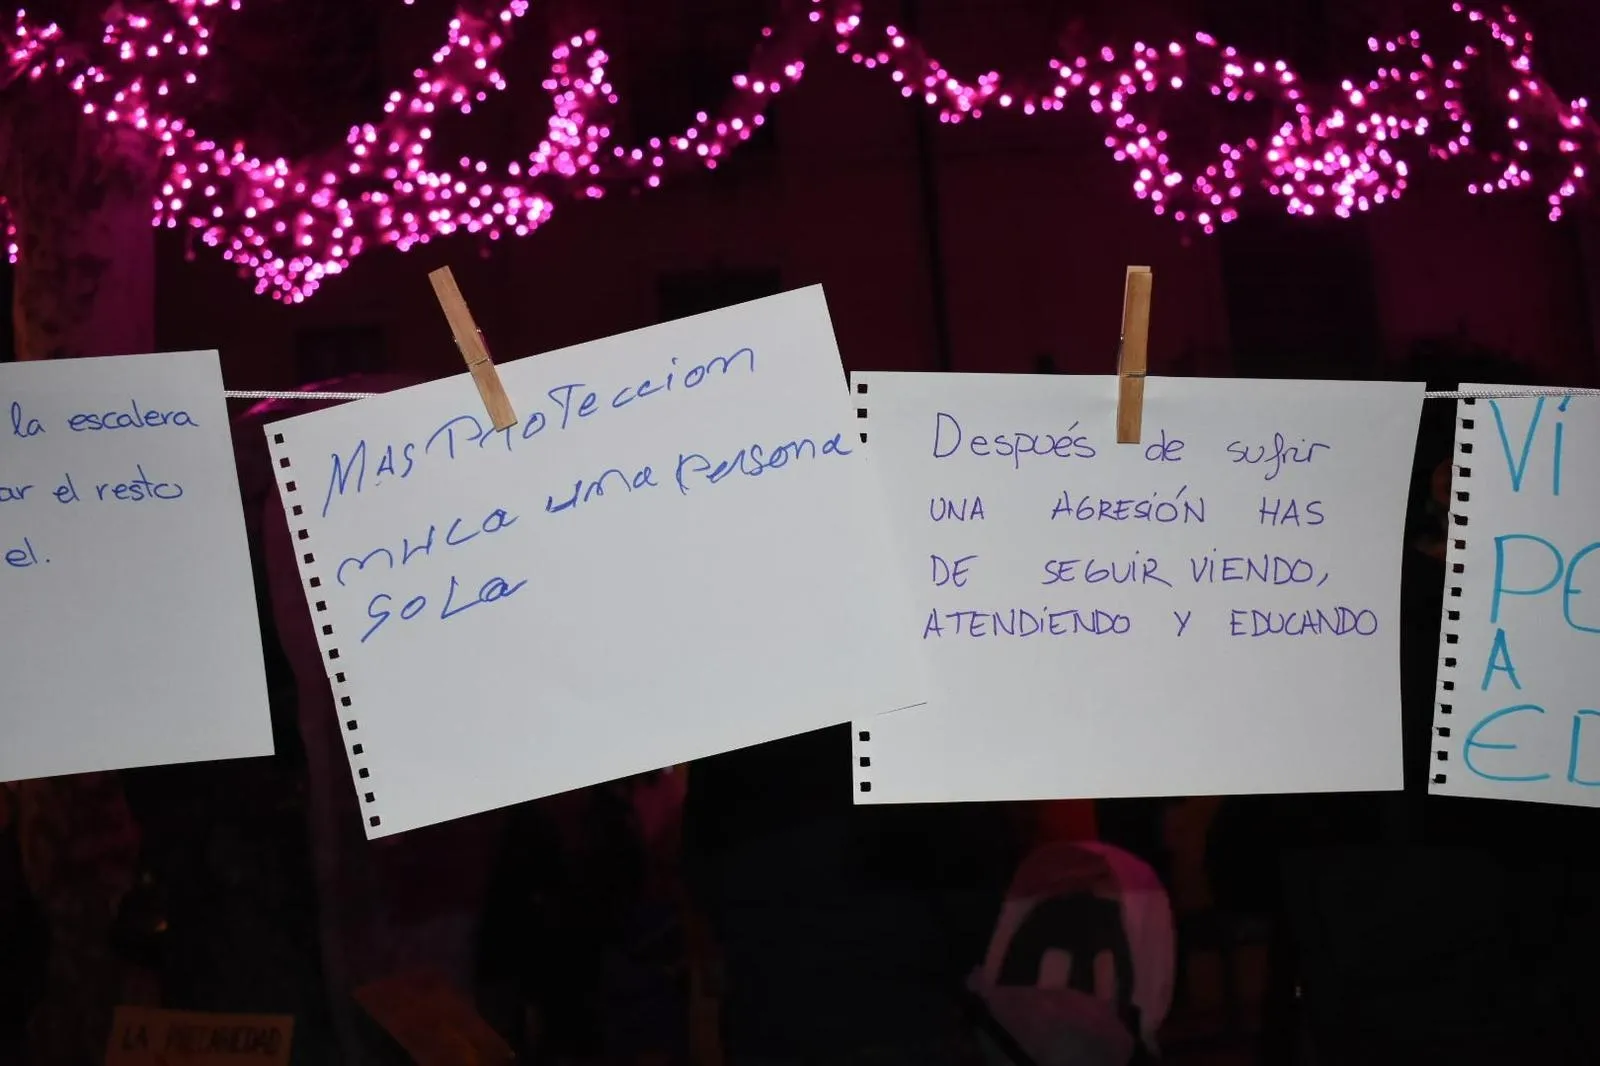 la escalera
ar el resto
el.
MAS PROTeccion
nuca una persona
sola
Después de sufrir
UNA AGRESIÓN HAS
DE SEGUIR VIENDO,
ATENDIENDO Y EDUCANDO
VÍ
PE
A
ED
LA PRECARIEDAD